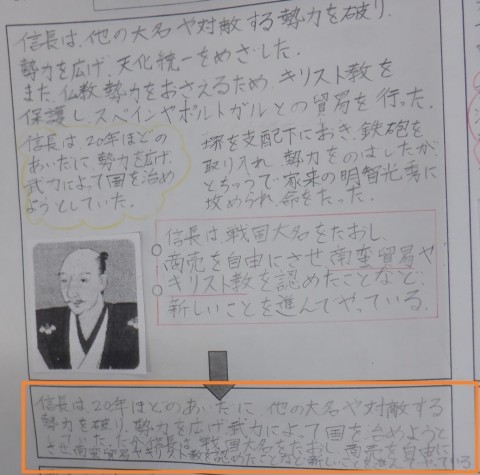 信長は、他の大名や対敵する勢力を破り、
勢力を広げ、天化統一をめざした。
また、仏教勢力をおさえるため、キリスト教を
保護し、スペインやポルトガルとの貿易を行った。
信長は、20年ほどの
あいだに、勢力を広げ、
武力によって国を治め
ようとしていた。
堺を支配下におき、鉄砲を
取り入れ、勢力をのばしたが、
とちゅうで、家来の明智光秀に
攻められ、命をたった。
○信長は、戦国大名をたおし、
商売を自由にさせ、南蛮貿易や
○キリスト教を認めたことなど、
新しいことを進んでやっている。
信長は、20年ほどのあいだに、他の大名や対敵する
勢力を破り、勢力を広げ武力によって国を治めようと
していた。だから信長は、戦国大名をたおし、商売を自由に
させ、南蛮貿易やキリスト教を認めたことなど新しいことを